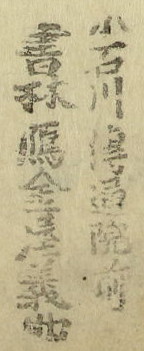 小石川傳通院前
書林 鴈金屋義助